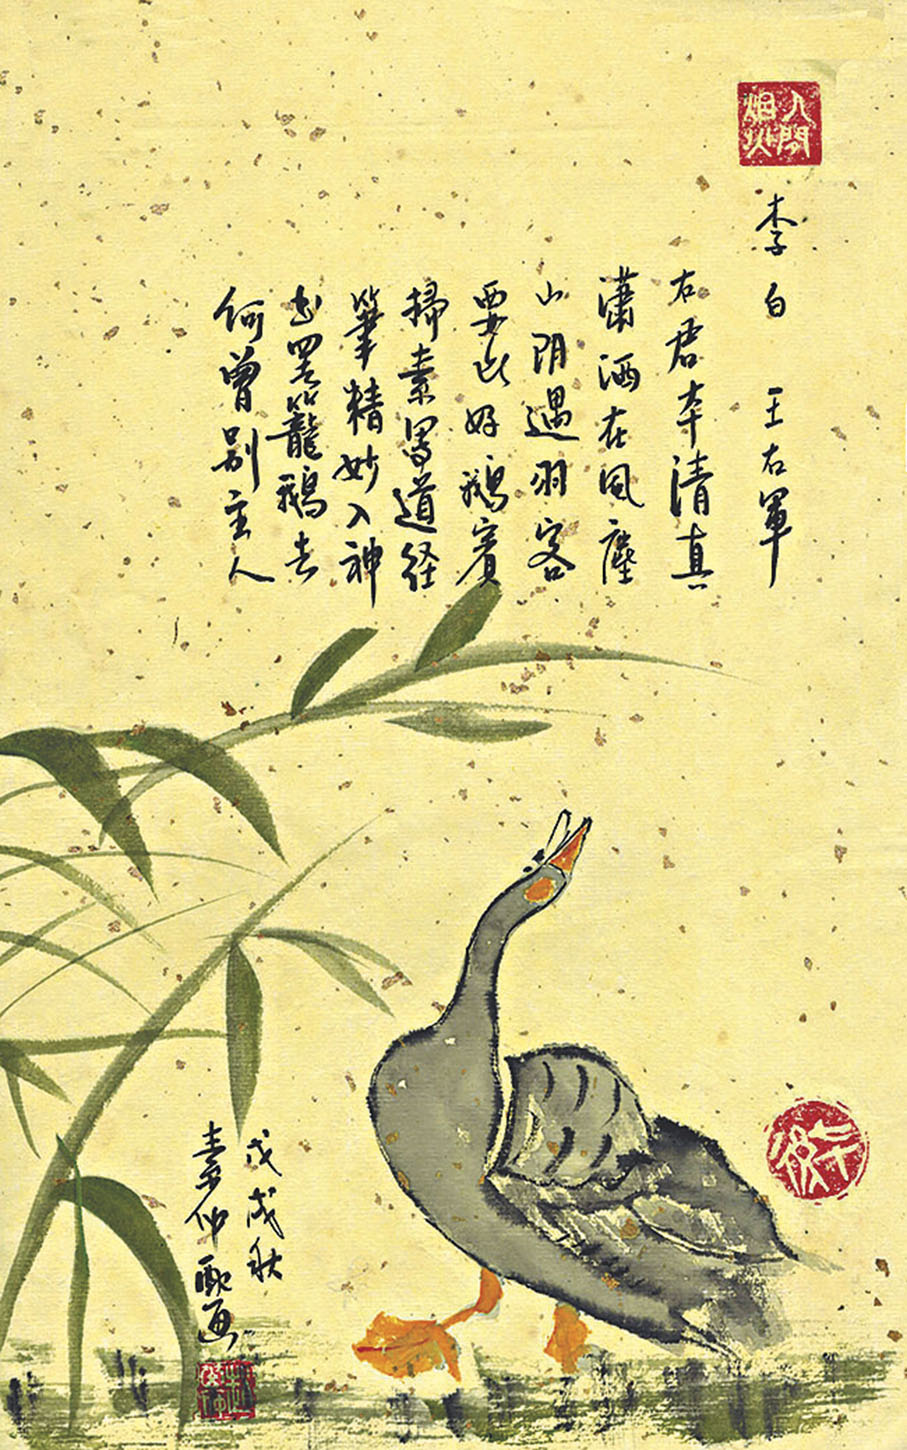 人間烟火
李白 王右軍
右君本清真
瀟洒在風塵
山阴遇羽客
要此好鵝賓
掃素寫道経
筆精妙入神
书罢籠鵝去
何曾别主人
戊戌秋
仲 画